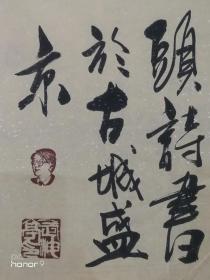 頭詩書
於古城盛
京
honor